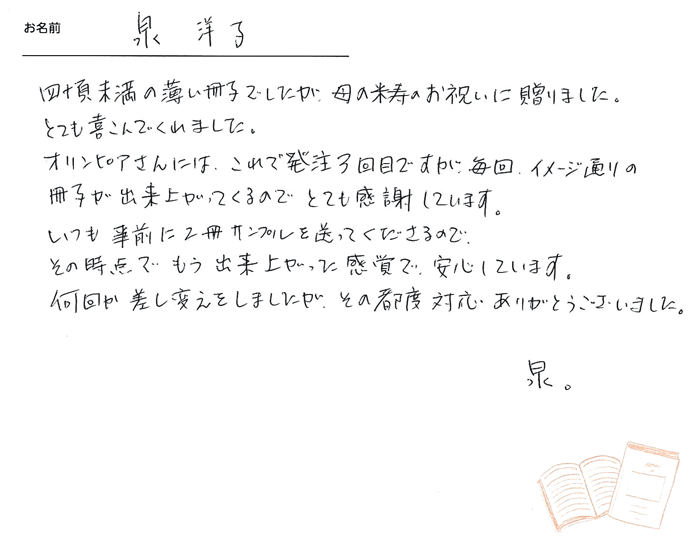 お名前 泉 洋子
四十頁未満の薄い冊子でしたが、母の米寿のお祝いに贈りました。
とても喜こんでくれました。
オリンピアさんには、これで発注3回目ですが、毎回、イメージ通りの
冊子が出来上がってくるのでとても感謝しています。
いつも事前に2冊サンプルを送ってくださるので、
その時点でもう出来上がった感覚で、安心しています。
何回か差し変えをしましたが、その都度対応、ありがとうございました。
泉。